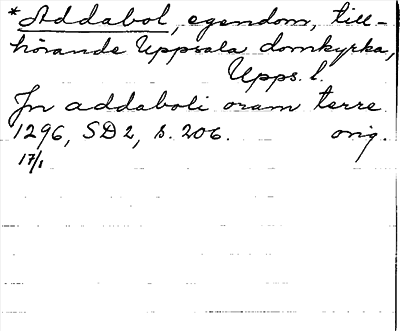 *Addabol, egendom, till-
hörande Uppsala domkyrka,
Upps. l.
In addaboli oram terre
1296, SD 2, s. 206. orig.
17/1